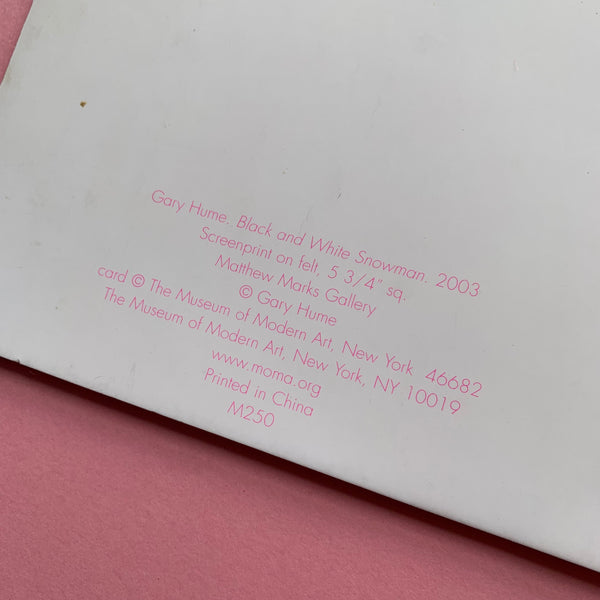 Gary Hume. Black and White Snowman. 2003
Screenprint on felt, 5 3/4" sq.
Matthew Marks Gallery
© Gary Hume
card © The Museum of Modern Art, New York 46682
The Museum of Modern Art, New York, NY 10019
www.moma.org
Printed in China
M250